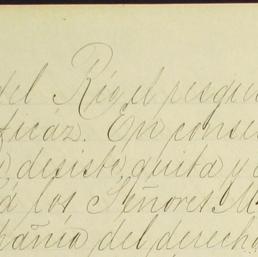 del Rio, el resgu
ficáz. En conse
desiste, quita y
á los Señores M
pañia del derech